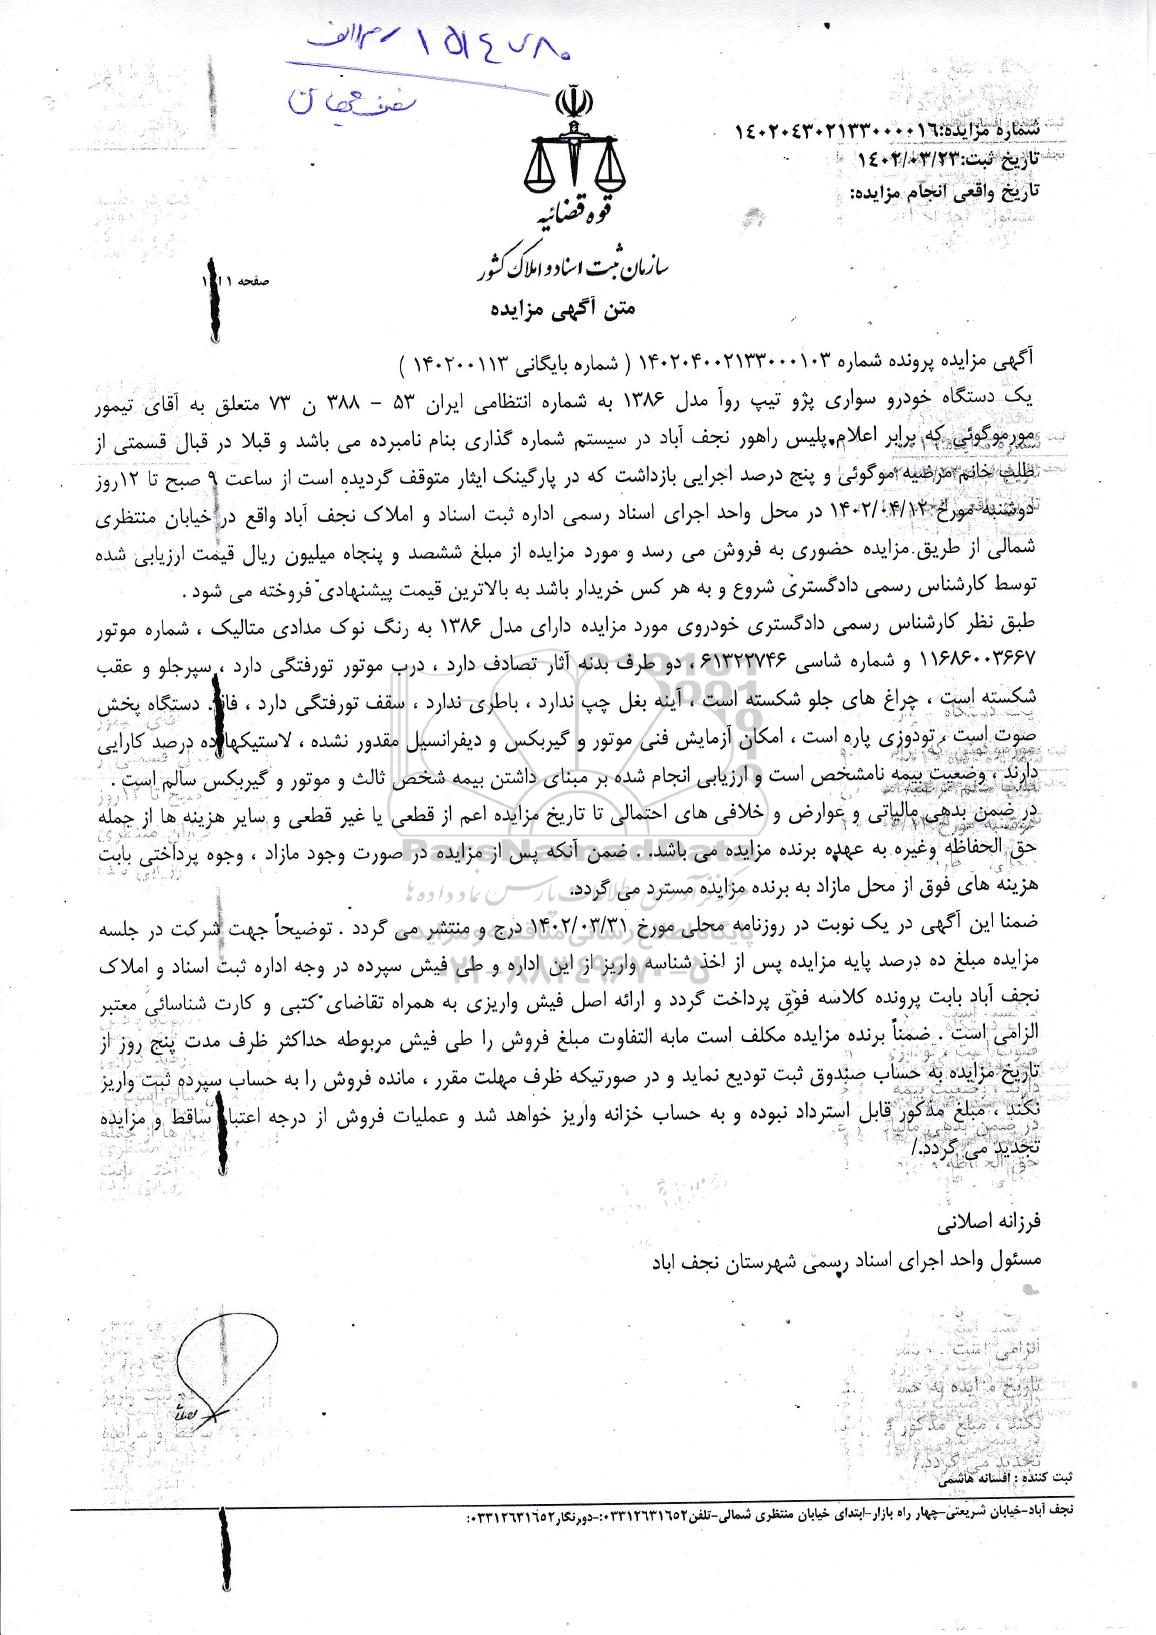 ۱۵۱۴۷۸۰ م الف
شماره مزایده:۱۴۰۲۰۴۳۰۲۱۳۳۰۰۰۰۱۶
تاریخ ثبت:۱۴۰۲/۰۳/۲۳
تاریخ واقعی انجام مزایده:
قوه قضائیه
سازمان ثبت اسناد و املاک کشور
صفحه ۱
متن آگهی مزایده
آگهی مزایده پرونده شماره ۱۴۰۲۰۴۰۰۲۱۳۳۰۰۰۱۰۳ ( شماره بایگانی ۱۴۰۲۰۰۱۱۳ )
یک دستگاه خودرو سواری پژو تیپ روآ مدل ۱۳۸۶ به شماره انتظامی ایران ۵۳ – ۳۸۸ ن ۷۳ متعلق به آقای تیمور
مورموگوئی که برابر اعلام پلیس راهور نجف آباد در سیستم شماره گذاری بنام نامبرده می باشد و قبلا در قبال قسمتی از
طلب خانم مرضیه موگوئی و پنج درصد اجرایی بازداشت که در پارگینک ایثار متوقف گردیده است از ساعت ۹ صبح تا ۱۲روز
دوشنبه مورخ ۱۴۰۲/۰۴/۱۲ در محل واحد اجرای اسناد رسمی اداره ثبت اسناد و املاک نجف آباد واقع در خیابان منتظری
شمالی از طریق مزایده حضوری به فروش می رسد و مورد مزایده از مبلغ ششصد و پنجاه میلیون ریال قیمت ارزیابی شده
توسط کارشناس رسمی دادگستری شروع و به هر کس خریدار باشد به بالاترین قیمت پیشنهادی فروخته می شود .
طبق نظر کارشناس رسمی دادگستری خودروی مورد مزایده دارای مدل ۱۳۸۶ به رنگ نوک مدادی متالیک ، شماره موتور
۱۱۶۸۶۰۰۳۶۶۷ و شماره شاسی ۶۱۳۲۲۷۴۶ ، دو طرف بدنه آثار تصادف دارد ، درب موتور تورفتگی دارد ، سپرجلو و عقب
شکسته است ، چراغ های جلو شکسته است ، آینه بغل چپ ندارد ، باطری ندارد ، سقف تورفتگی دارد ، فاقد دستگاه پخش
صوت است ، تودوزی پاره است ، امکان آزمایش فنی موتور و گیربکس و دیفرانسیل مقدور نشده ، لاستیکها ده درصد کارایی
دارند ، وضعیت بیمه نامشخص است و ارزیابی انجام شده بر مبنای داشتن بیمه شخص ثالث و موتور و گیربکس سالم است .
در ضمن بدهی مالیاتی و عوارض و خلافی های احتمالی تا تاریخ مزایده اعم از قطعی یا غیر قطعی و سایر هزینه ها از جمله
حق الحفاظه وغیره به عهده برنده مزایده می باشد. . ضمن آنکه پس از مزایده در صورت وجود مازاد ، وجوه پرداختی بابت
هزینه های فوق از محل مازاد به برنده مزایده مسترد می گردد.
ضمنا این آگهی در یک نوبت در روزنامه محلی مورخ ۱۴۰۲/۰۳/۳۱ درج و منتشر می گردد . توضیحاً جهت شرکت در جلسه
مزایده مبلغ ده درصد پایه مزایده پس از اخذ شناسه واریز از این اداره و طی فیش سپرده در وجه اداره ثبت اسناد و املاک
نجف آباد بابت پرونده کلاسه فوق پرداخت گردد و ارائه اصل فیش واریزی به همراه تقاضای کتبی و کارت شناسائی معتبر
الزامی است . ضمناً برنده مزایده مکلف است مابه التفاوت مبلغ فروش را طی فیش مربوطه حداکثر ظرف مدت پنج روز از
تاریخ مزایده به حساب صندوق ثبت تودیع نماید و در صورتیکه ظرف مهلت مقرر ، مانده فروش را به حساب سپرده ثبت واریز
نکند ، مبلغ مذکور قابل استرداد نبوده و به حساب خزانه واریز خواهد شد و عملیات فروش از درجه اعتبار ساقط و مزایده
تجدید می گردد./
فرزانه اصلانی
مسئول واحد اجرای اسناد رسمی شهرستان نجف اباد
ثبت کننده : افسانه هاشمی
نجف آباد-خیابان شریعتی-چهار راه بازار-ابتدای خیابان منتظری شمالی-تلفن۰۳۳۱۲۶۳۱۶۵۲:-دورنگار۰۳۳۱۲۶۳۱۶۵۲: